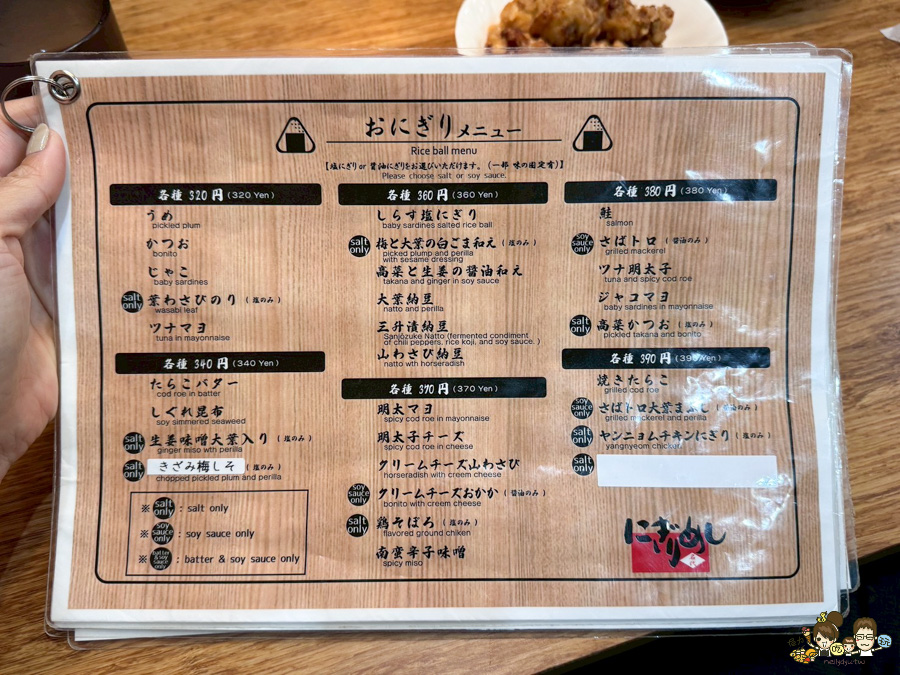 おにぎりメニュー
Rice ball menu
【塩にぎり or 醤油にぎりをお選びいただけます。(一部 味の固定有)】
Please choose salt or soy sauce.
各種 320 円 (320 Yen)
うめ
pickled plum
かつお
bonito
じゃこ
baby sardines
salt only 葉わさびのり (塩のみ)
wasabi leaf
ツナマヨ
tuna in mayonnaise
各種 340 円 (340 Yen)
たらこバター
cod roe in batter
しぐれ昆布
soy simmered seaweed
salt only 生姜味噌大葉入り (塩のみ)
ginger miso wth perilla
salt only きざみ梅しそ (塩のみ)
chopped pickled plum and perilla
※ salt only : salt only
※ soy sauce only : soy sauce only
※ batter & soy sauce only : batter & soy sauce only
各種 360 円 (360 Yen)
しらす塩にぎり
baby sardines salted rice ball
salt only 梅と大葉の白ごま和え (塩のみ)
picked plump and perilla
with sesame dressing
高菜と生姜の醤油和え
takana and ginger in soy sauce
大葉納豆
natto and perilla
三升漬納豆
Sanjozuke Natto (fermented condiment
of chili peppers, rice koji, and soy sauce. )
山わさび納豆
natto wth horseradish
各種 370 円 (370 Yen)
明太マヨ
spicy cod roe in mayonnaise
明太子チーズ
spicy cod roe in cheese
クリームチーズ山わさび
horseradish with creem cheese
soy sauce only クリームチーズおかか (醤油のみ)
bonito with creem cheese
salt only 鶏そぼろ (塩のみ)
flavored ground chiken
南蛮辛子味噌
spicy miso
各種 380 円 (380 Yen)
鮭
salmon
soy sauce only さばトロ (醤油のみ)
grilled mackerel
ツナ明太子
tuna and spicy cod roe
ジャコマヨ
baby sardines in mayonnaise
salt only 高菜かつお (塩のみ)
pickled takana and bonito
各種 390 円 (390 Yen)
焼きたらこ
grilled cod roe
soy sauce only さばトロ大葉まぶし (醤油のみ)
grilled mackerel and perilla
salt only ヤンニョムチキンにぎり (塩のみ)
yangnyeom chicken
salt only
にぎりめし